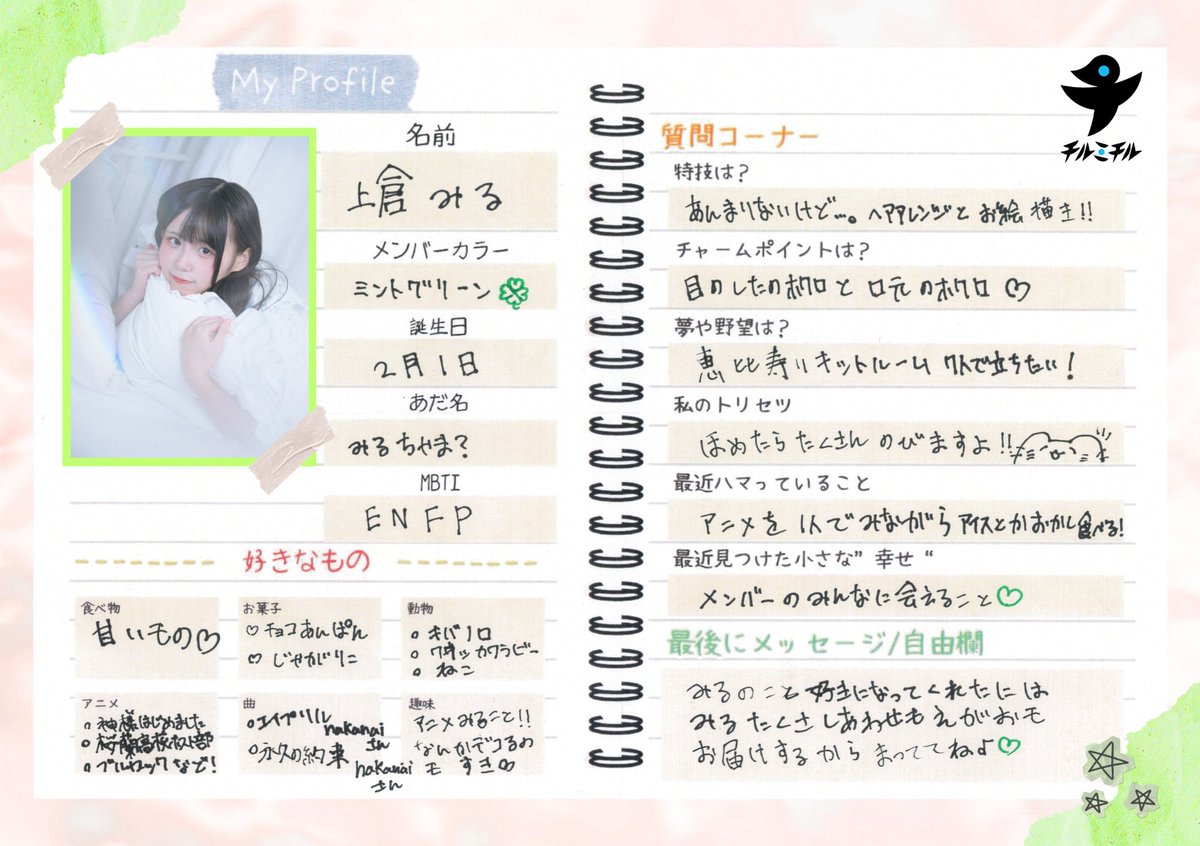 My Profile
名前
上倉みる
メンバーカラー
ミントグリーン
誕生日
2月1日
あだ名
みるちゃま?
MBTI
ENFP
好きなもの
食べ物
甘いもの♡
お菓子
♡チョコあんぱん
♡じゃがりこ
動物
。キバノロ
。クオッカワラビー
。ねこ
アニメ
。神様はじめました
。桜蘭高校ホスト部
。ブルーロックなど!
曲
。エイプリル
nakanaiさん
。永久の約束
nakanaiさん
趣味
アニメみること!!
なんかデコるの
モ すき♡
チルミチル
質問コーナー
特技は?
あんまりないけど…。ヘアアレンジと お絵描き!!
チャームポイントは?
目のしたのホクロと 口元のホクロ ♡
夢や野望は?
恵比寿リキッドルーム 7人で立ちたい!
私のトリセツ
ほめたら たくさん のびますよ!!
最近ハマっていること
アニメを 1人で みながら アイスとかおかし食べる!
最近見つけた小さな”幸せ“
メンバーのみんなに会えること♡
最後にメッセージ/自由欄
みるのこと 好きになってくれたには
みる たくさしあわせも えがおも
お届けするから まっててねよ♡